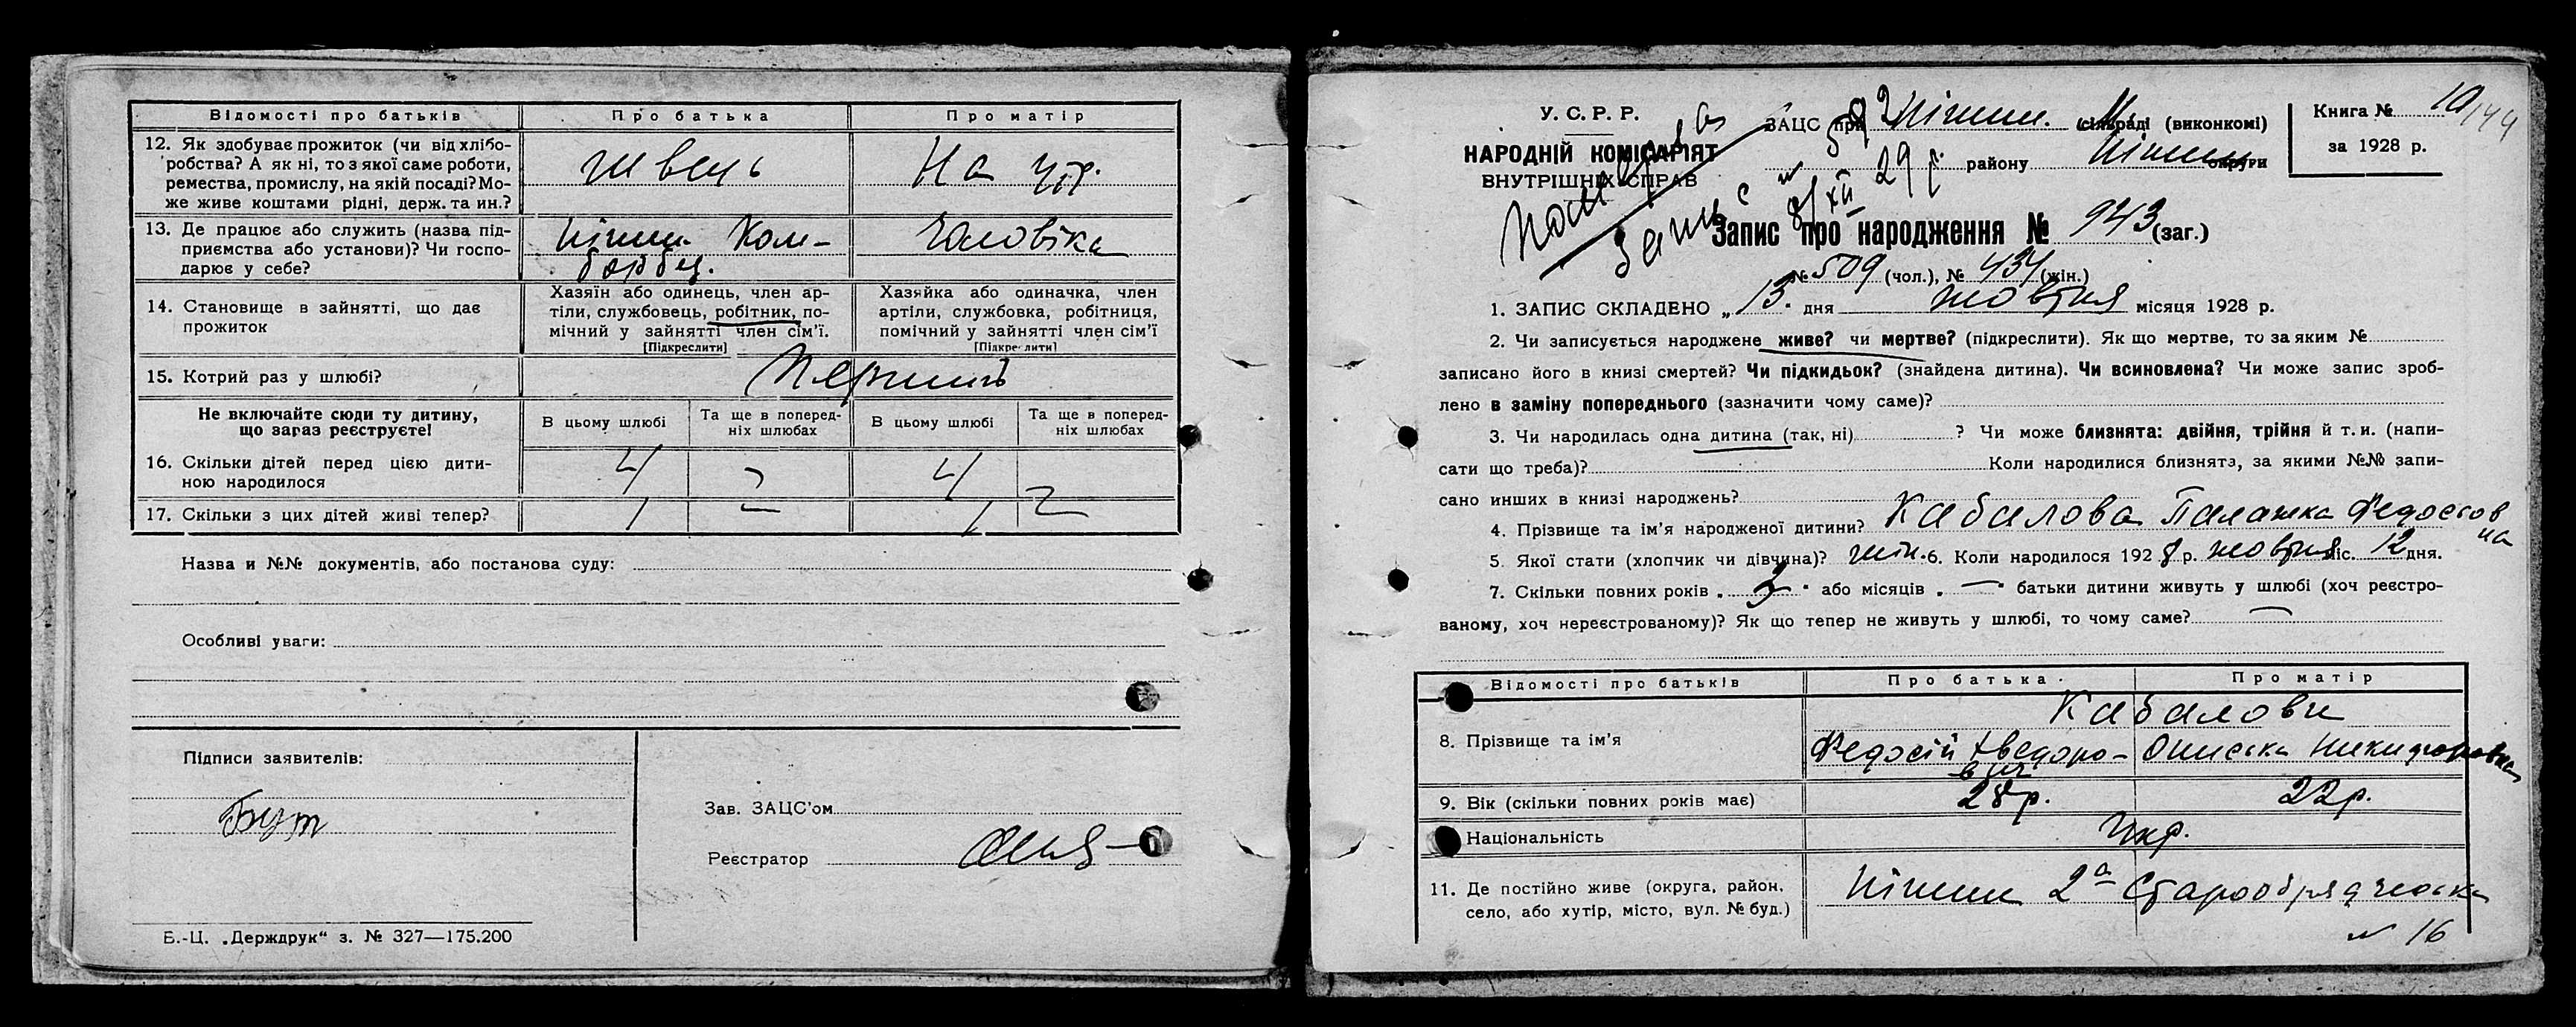 Відомості про батьків Про батька Про матір
12. Як здобуває прожиток (чи від хлібо-
робства? А як ні, то з якої саме роботи,
ремества, промислу, на якій посаді? Мо-
же живе коштами рідні, держ. та ин.?
швець На утр.
13. Де працює або служить (назва під-
приємства або установи)? Чи госпо-
дарює у себе?
Ніжин. Ком- чоловіка
борбез.
14. Становище в зайнятті, що дає
прожиток
Хазяїн або одинець, член ар-
тіли, службовець, робітник, по-
мічний у зайнятті член сім'ї.
[Підкреслити]
Хазяйка або одиначка, член
артіли, службовка, робітниця,
помічний у зайнятті член сім'ї
[Підкреслити]
15. Котрий раз у шлюбі?
Перший
Не включайте сюди ту дитину,
що зараз реєструєте!
В цьому шлюбі Та ще в поперед-
ніх шлюбах В цьому шлюбі Та ще в поперед-
ніх шлюбах
16. Скільки дітей перед цією дити-
ною народилося
4 - 4 -
17. Скільки з цих дітей живі тепер? 1 - 1 -
Назва и №№ документів, або постанова суду:
Особливі уваги:
Підписи заявителів:
Бут
Зав. ЗАЦС'ом
Реєстратор
Б.-Ц. „Держдрук“ з. № 327—175.200
У. С. Р. Р.
НАРОДНІЙ КОМІСАРІЯТ
ВНУТРІШНІХ СПРАВ
ЗАЦС при Ніжин. М. сільраді (виконкомі)
району Ніжин округи
Книга № 10
за 1928 р.
144
Запис
8/XII 29 р.
Запис про народження № 943 (заг.)
№ 509 (чол.), № 434 (жін.)
1. ЗАПИС СКЛАДЕНО „ 13. дня жовтня місяця 1928 р.
2. Чи записується народжене живе? чи мертве? (підкреслити). Як що мертве, то за яким №
записано його в книзі смертей? Чи підкидьок? (знайдена дитина). Чи всиновлена? Чи може запис зроб-
лено в заміну попереднього (зазначити чому саме)?
3. Чи народилась одна дитина (так, ні) ? Чи може близнята: двійня, трійня й т. и. (напи-
сати що треба)? Коли народилися близнята, за якими №№ запи-
сано инших в книзі народжень?
4. Прізвище та ім'я народженої дитини? Кабалова Палажка Федосіов
на
5. Якої стати (хлопчик чи дівчина)? жін. 6. Коли народилося 1928 р. жовтня міс. 12 дня.
7. Скільки повних років „ 3 “ або місяців „ — “ батьки дитини живуть у шлюбі (хоч реєстро-
ваному, хоч нереєстрованому)? Як що тепер не живуть у шлюбі, то чому саме? —
Відомості про батьків Про батька Про матір
Кабалови
8. Прізвище та ім'я Федосій Хведоро- Ониська Никифоровна
вич
9. Вік (скільки повних років має) 28 р. 22 р.
Національність Укр.
11. Де постійно живе (округа, район,
село, або хутір, місто, вул. № буд.)
Ніжин 2а Старообрядческа
№ 16